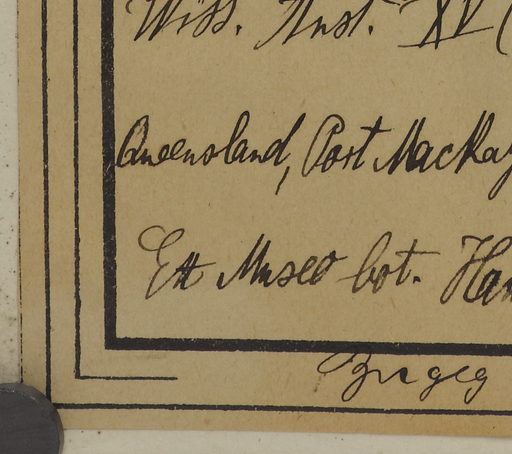 Wiss. Anst. XV (
Queensland, Port Mackay
Ex Museo bot. Ham